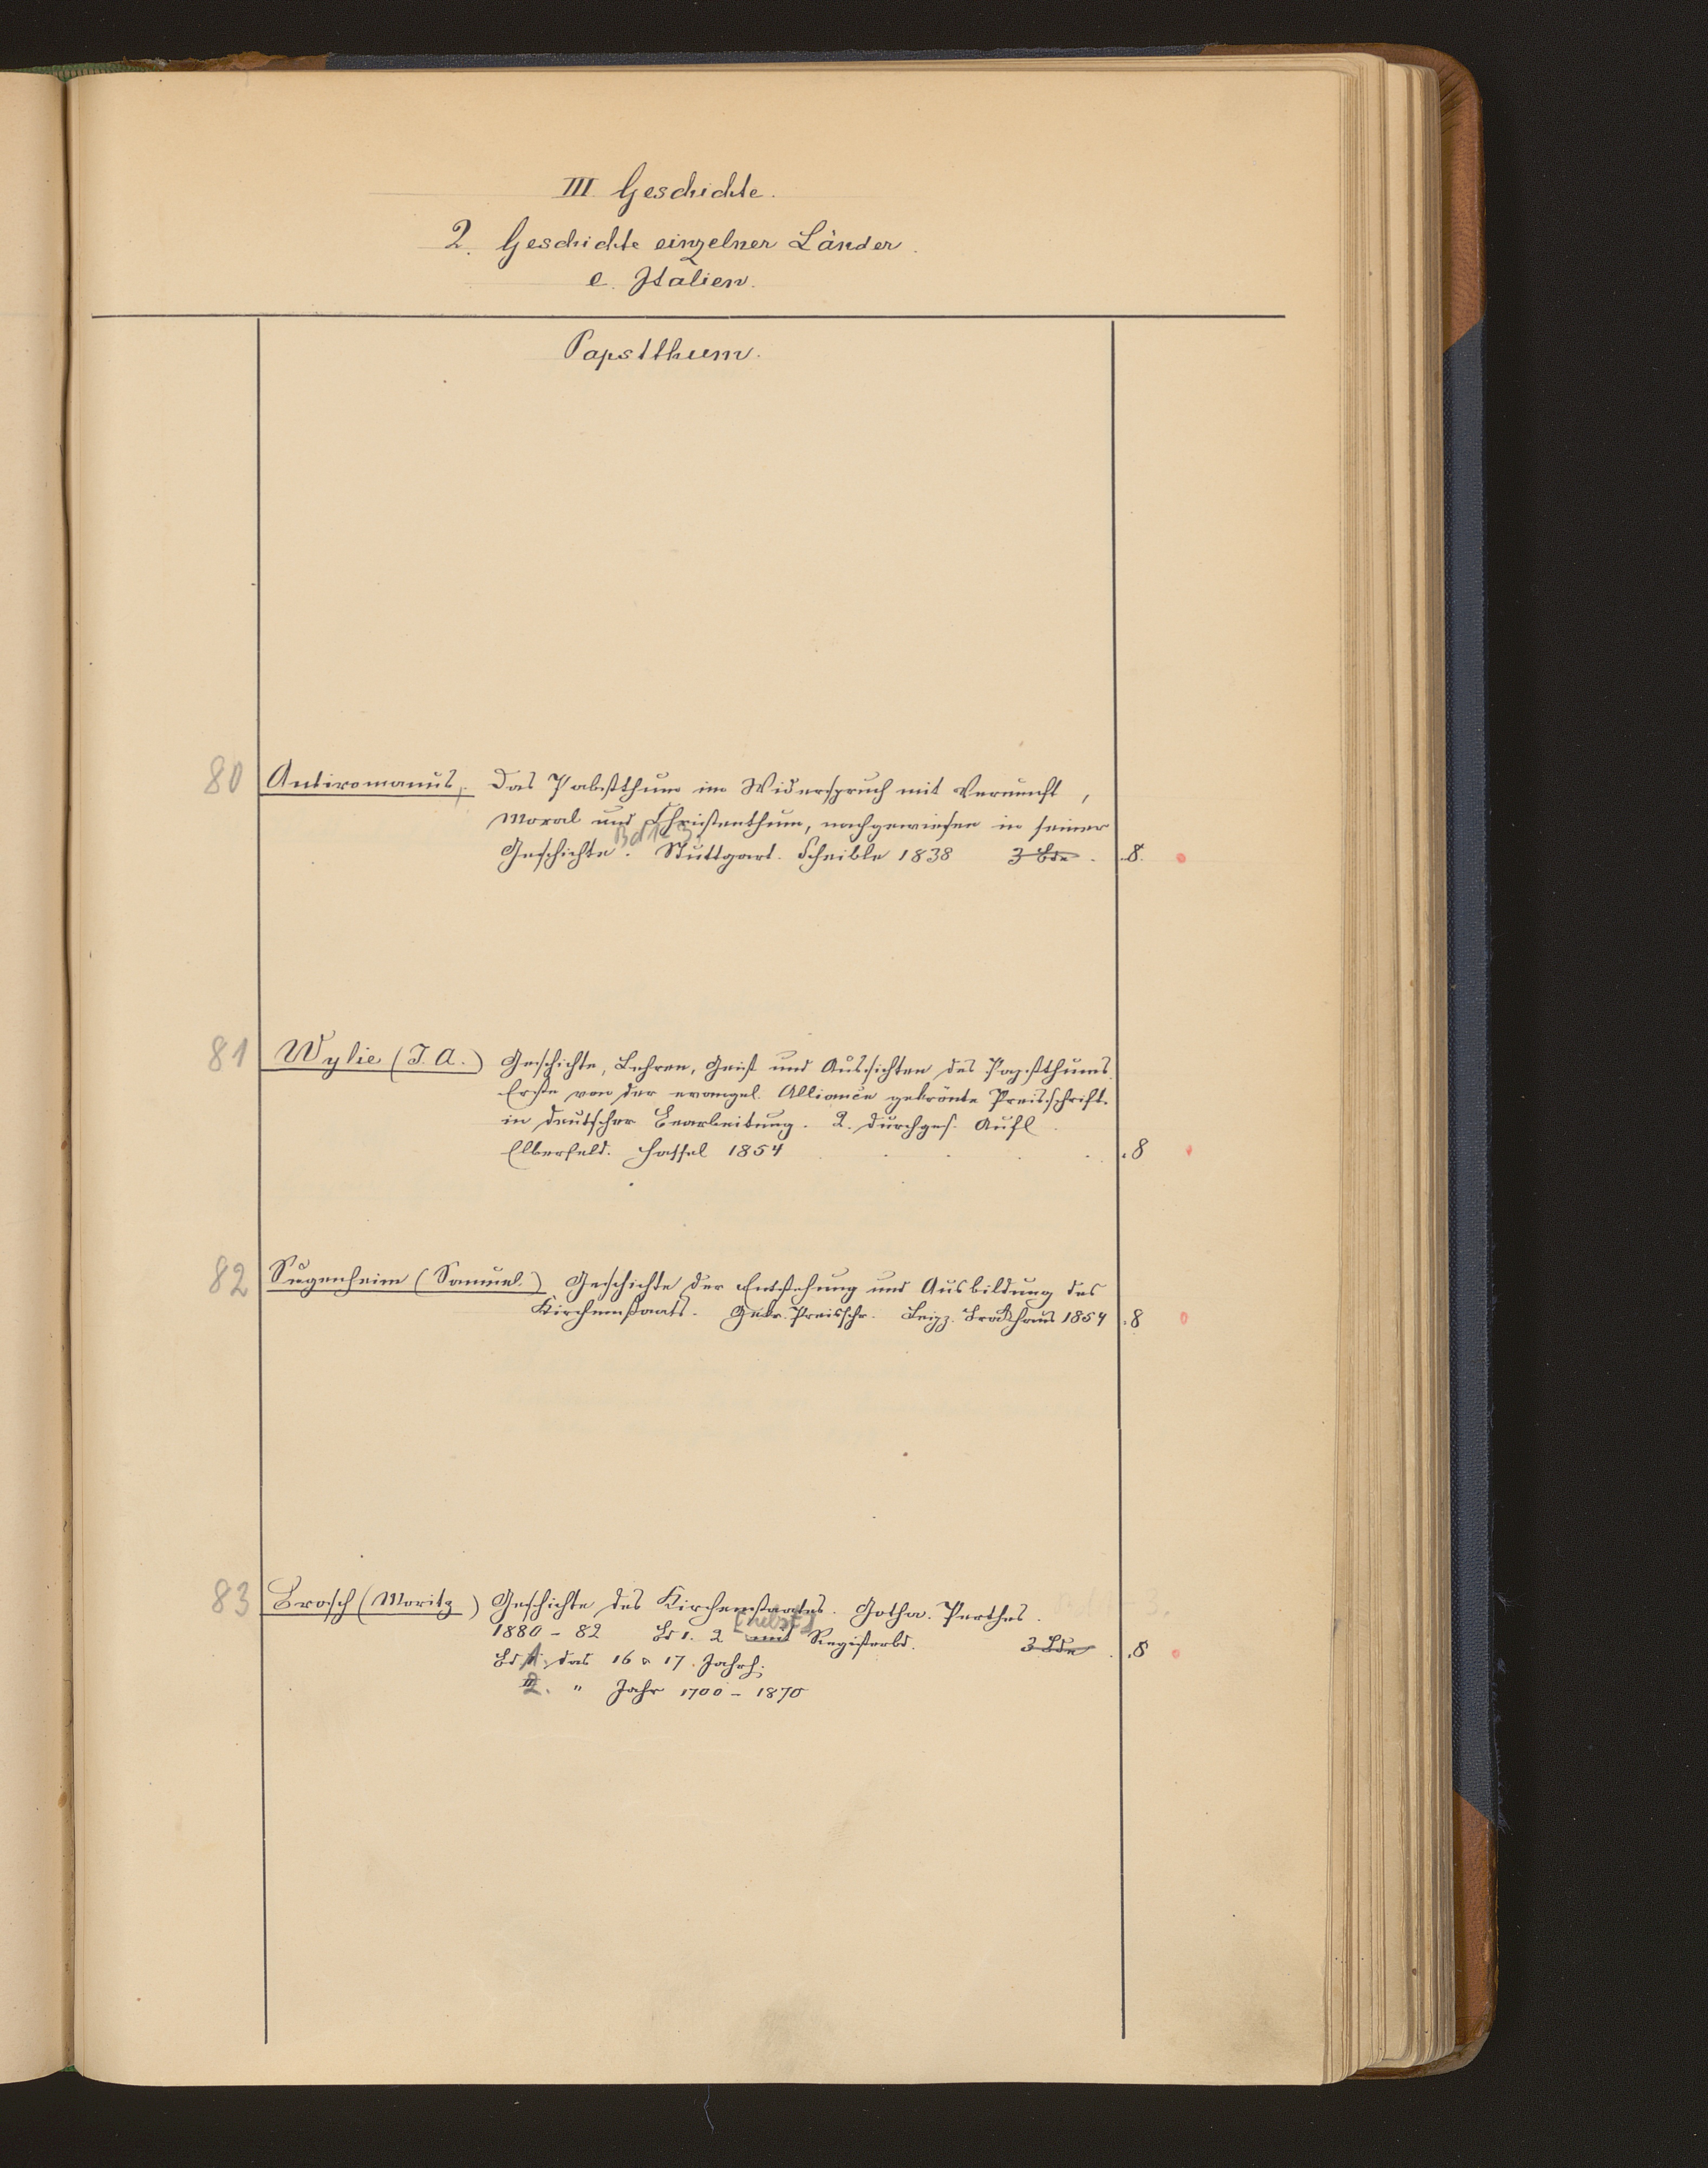 III. Geschichte.
2. Geschichte einzelner Länder.
e. Italien.
Papstthum.
80 Antiromanus, Das Pabstthum im Widerspruch mit Vernunft,
Moral und Christenthum, nachgewiesen in seiner
Bd 1-3
Geschichte. Stuttgart. Scheible 1838 3 Bde. 8.
81 Wylie (J. A.) Geschichte, Lehren, Geist und Aussichten des Papstthums.
Erste von der evangel. Alliance gekrönte Preisschrift.
in deutscher Bearbeitung. 2. durchges. Aufl.
Elberfeld. Hassel 1854 . . . . 8
82 Sugenheim (Samuel.) Geschichte der Entstehung und Ausbildung des
Kirchenstaats. Gekr. Preisschr. Leipz. Brockhaus 1854 . 8
83 Brosch (Moritz) Geschichte des Kirchenstaates. Gotha. Perthes.
[nebst]
1880-82 Bd 1. 2 und Registerbd. 3 Bde . 8
Bd 1. das 16 & 17. Jahrh;
2. " Jahr 1700-1870